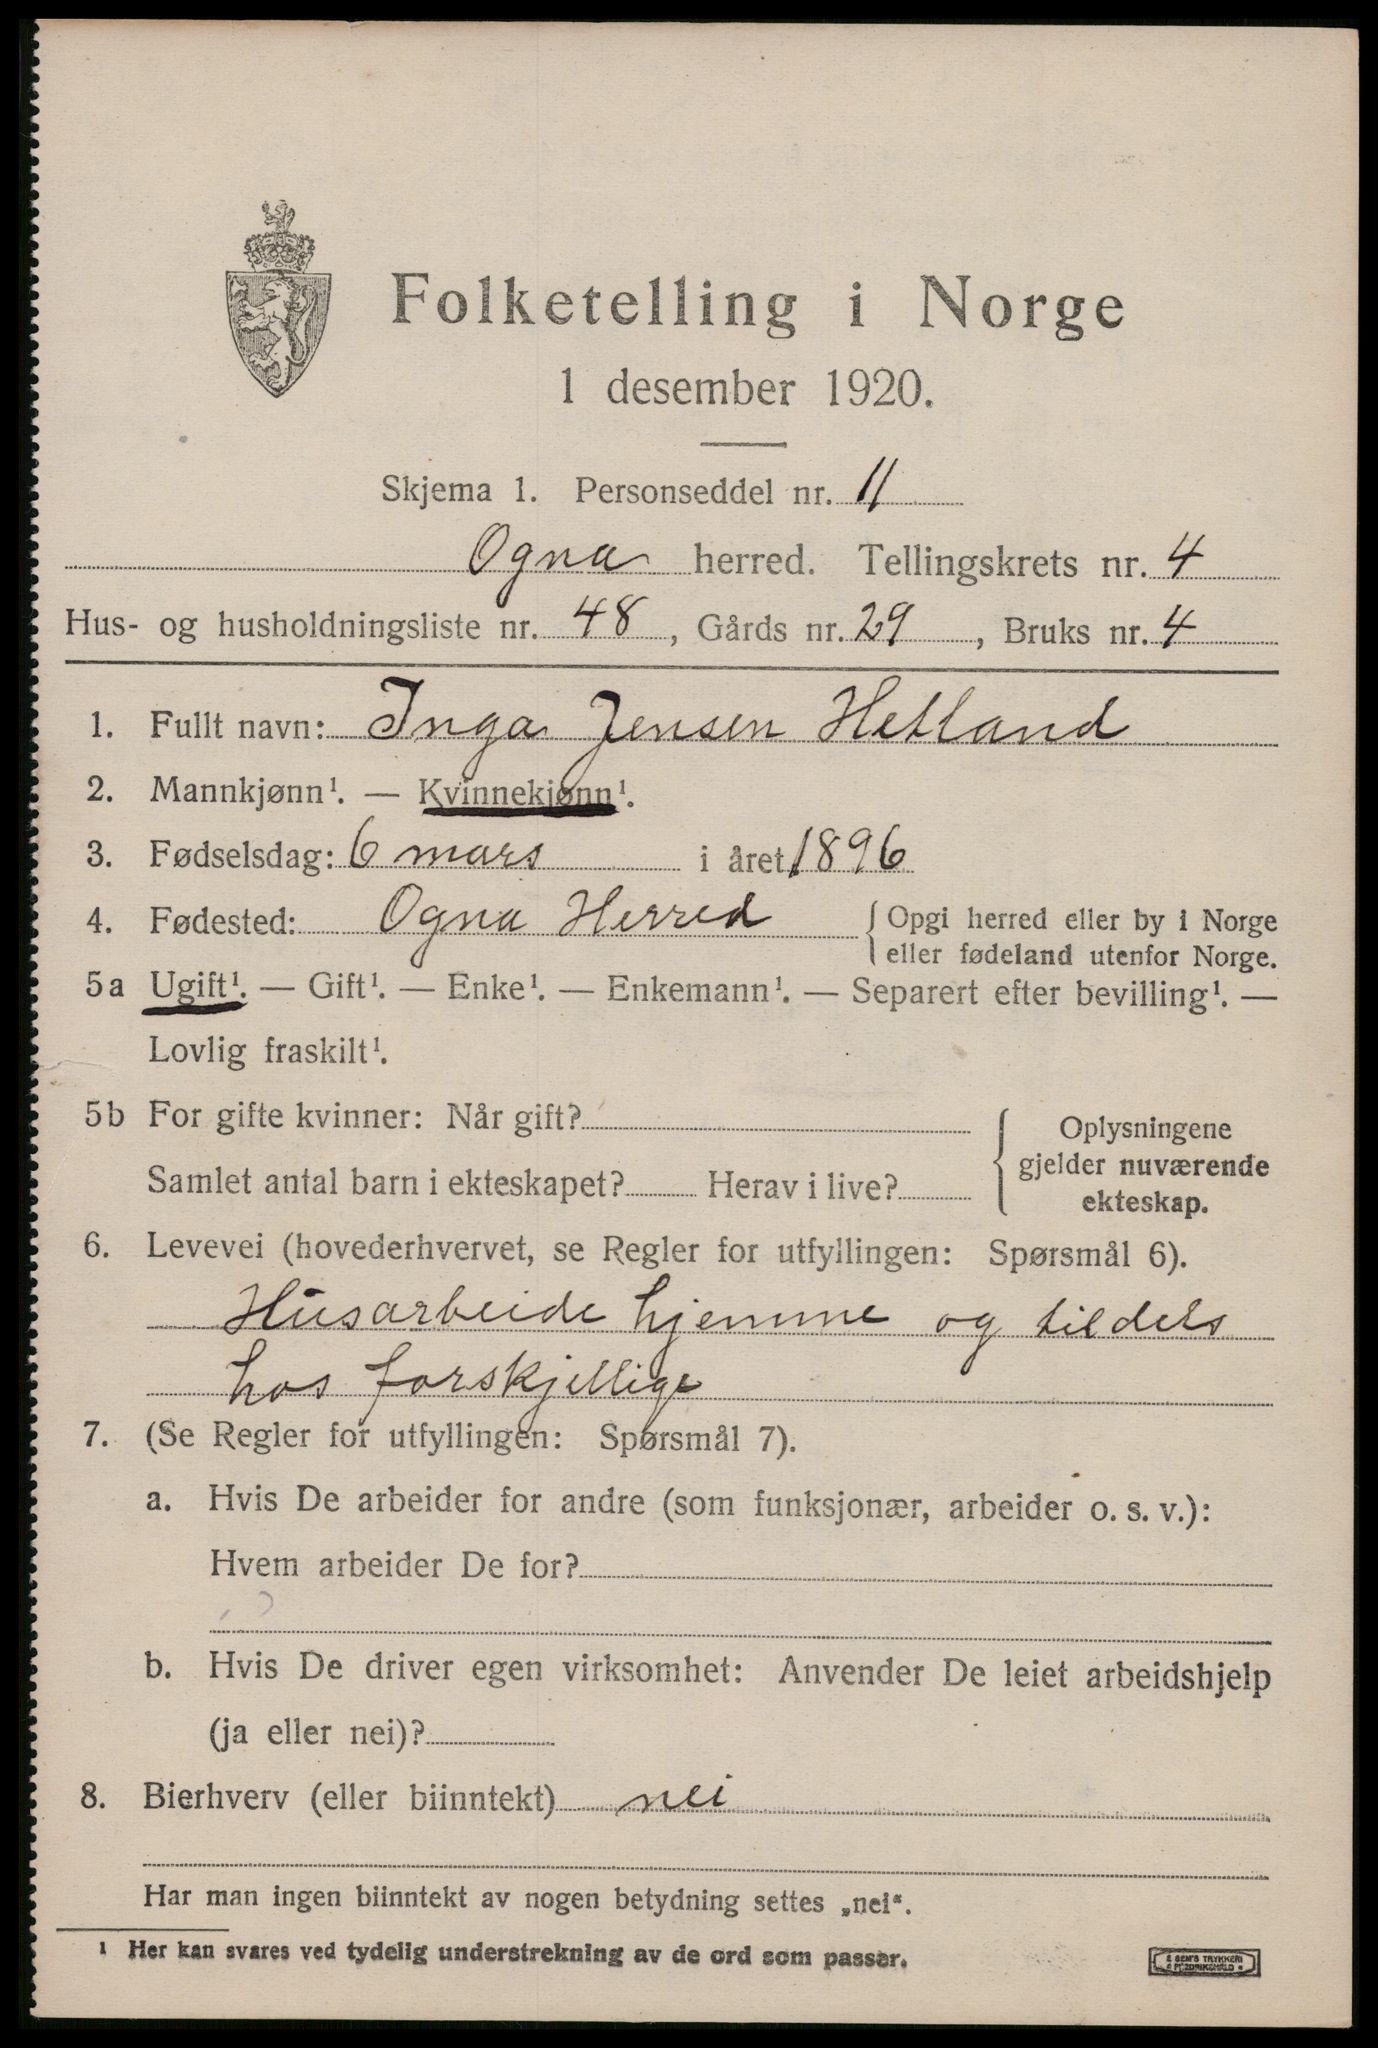 Folketelling i Norge
1 desember 1920.
Skjema 1. Personseddel nr. 11
Ogna herred. Tellingskrets nr. 4
Hus- og husholdningsliste nr. 48, Gårds nr. 29, Bruks nr. 4
1. Fullt navn: Inga Jensen Hetland
2. Mannkjønn¹. — Kvinnekjønn¹.
3. Fødselsdag: 6 mars i året 1896
4. Fødested: Ogna Herred { Opgi herred eller by i Norge
eller fødeland utenfor Norge.
5a Ugift¹. — Gift¹. — Enke¹. — Enkemann¹. — Separert efter bevilling¹. —
Lovlig fraskilt¹.
5b For gifte kvinner: Når gift?
Samlet antal barn i ekteskapet? Herav i live?
Oplysningene
gjelder nuværende
ekteskap.
6. Levevei (hovederhvervet, se Regler for utfyllingen: Spørsmål 6).
Husarbeide hjemme og tildels
hos forskjellige
7. (Se Regler for utfyllingen: Spørsmål 7).
a. Hvis De arbeider for andre (som funksjonær, arbeider o. s. v.):
Hvem arbeider De for?
b. Hvis De driver egen virksomhet: Anvender De leiet arbeidshjelp
(ja eller nei)?
8. Bierhverv (eller biinntekt) nei
Har man ingen biinntekt av nogen betydning settes „nei“.
¹ Her kan svares ved tydelig understrekning av de ord som passer.